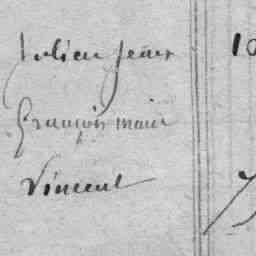 Julien Jean 10
François marie
Vincent 7